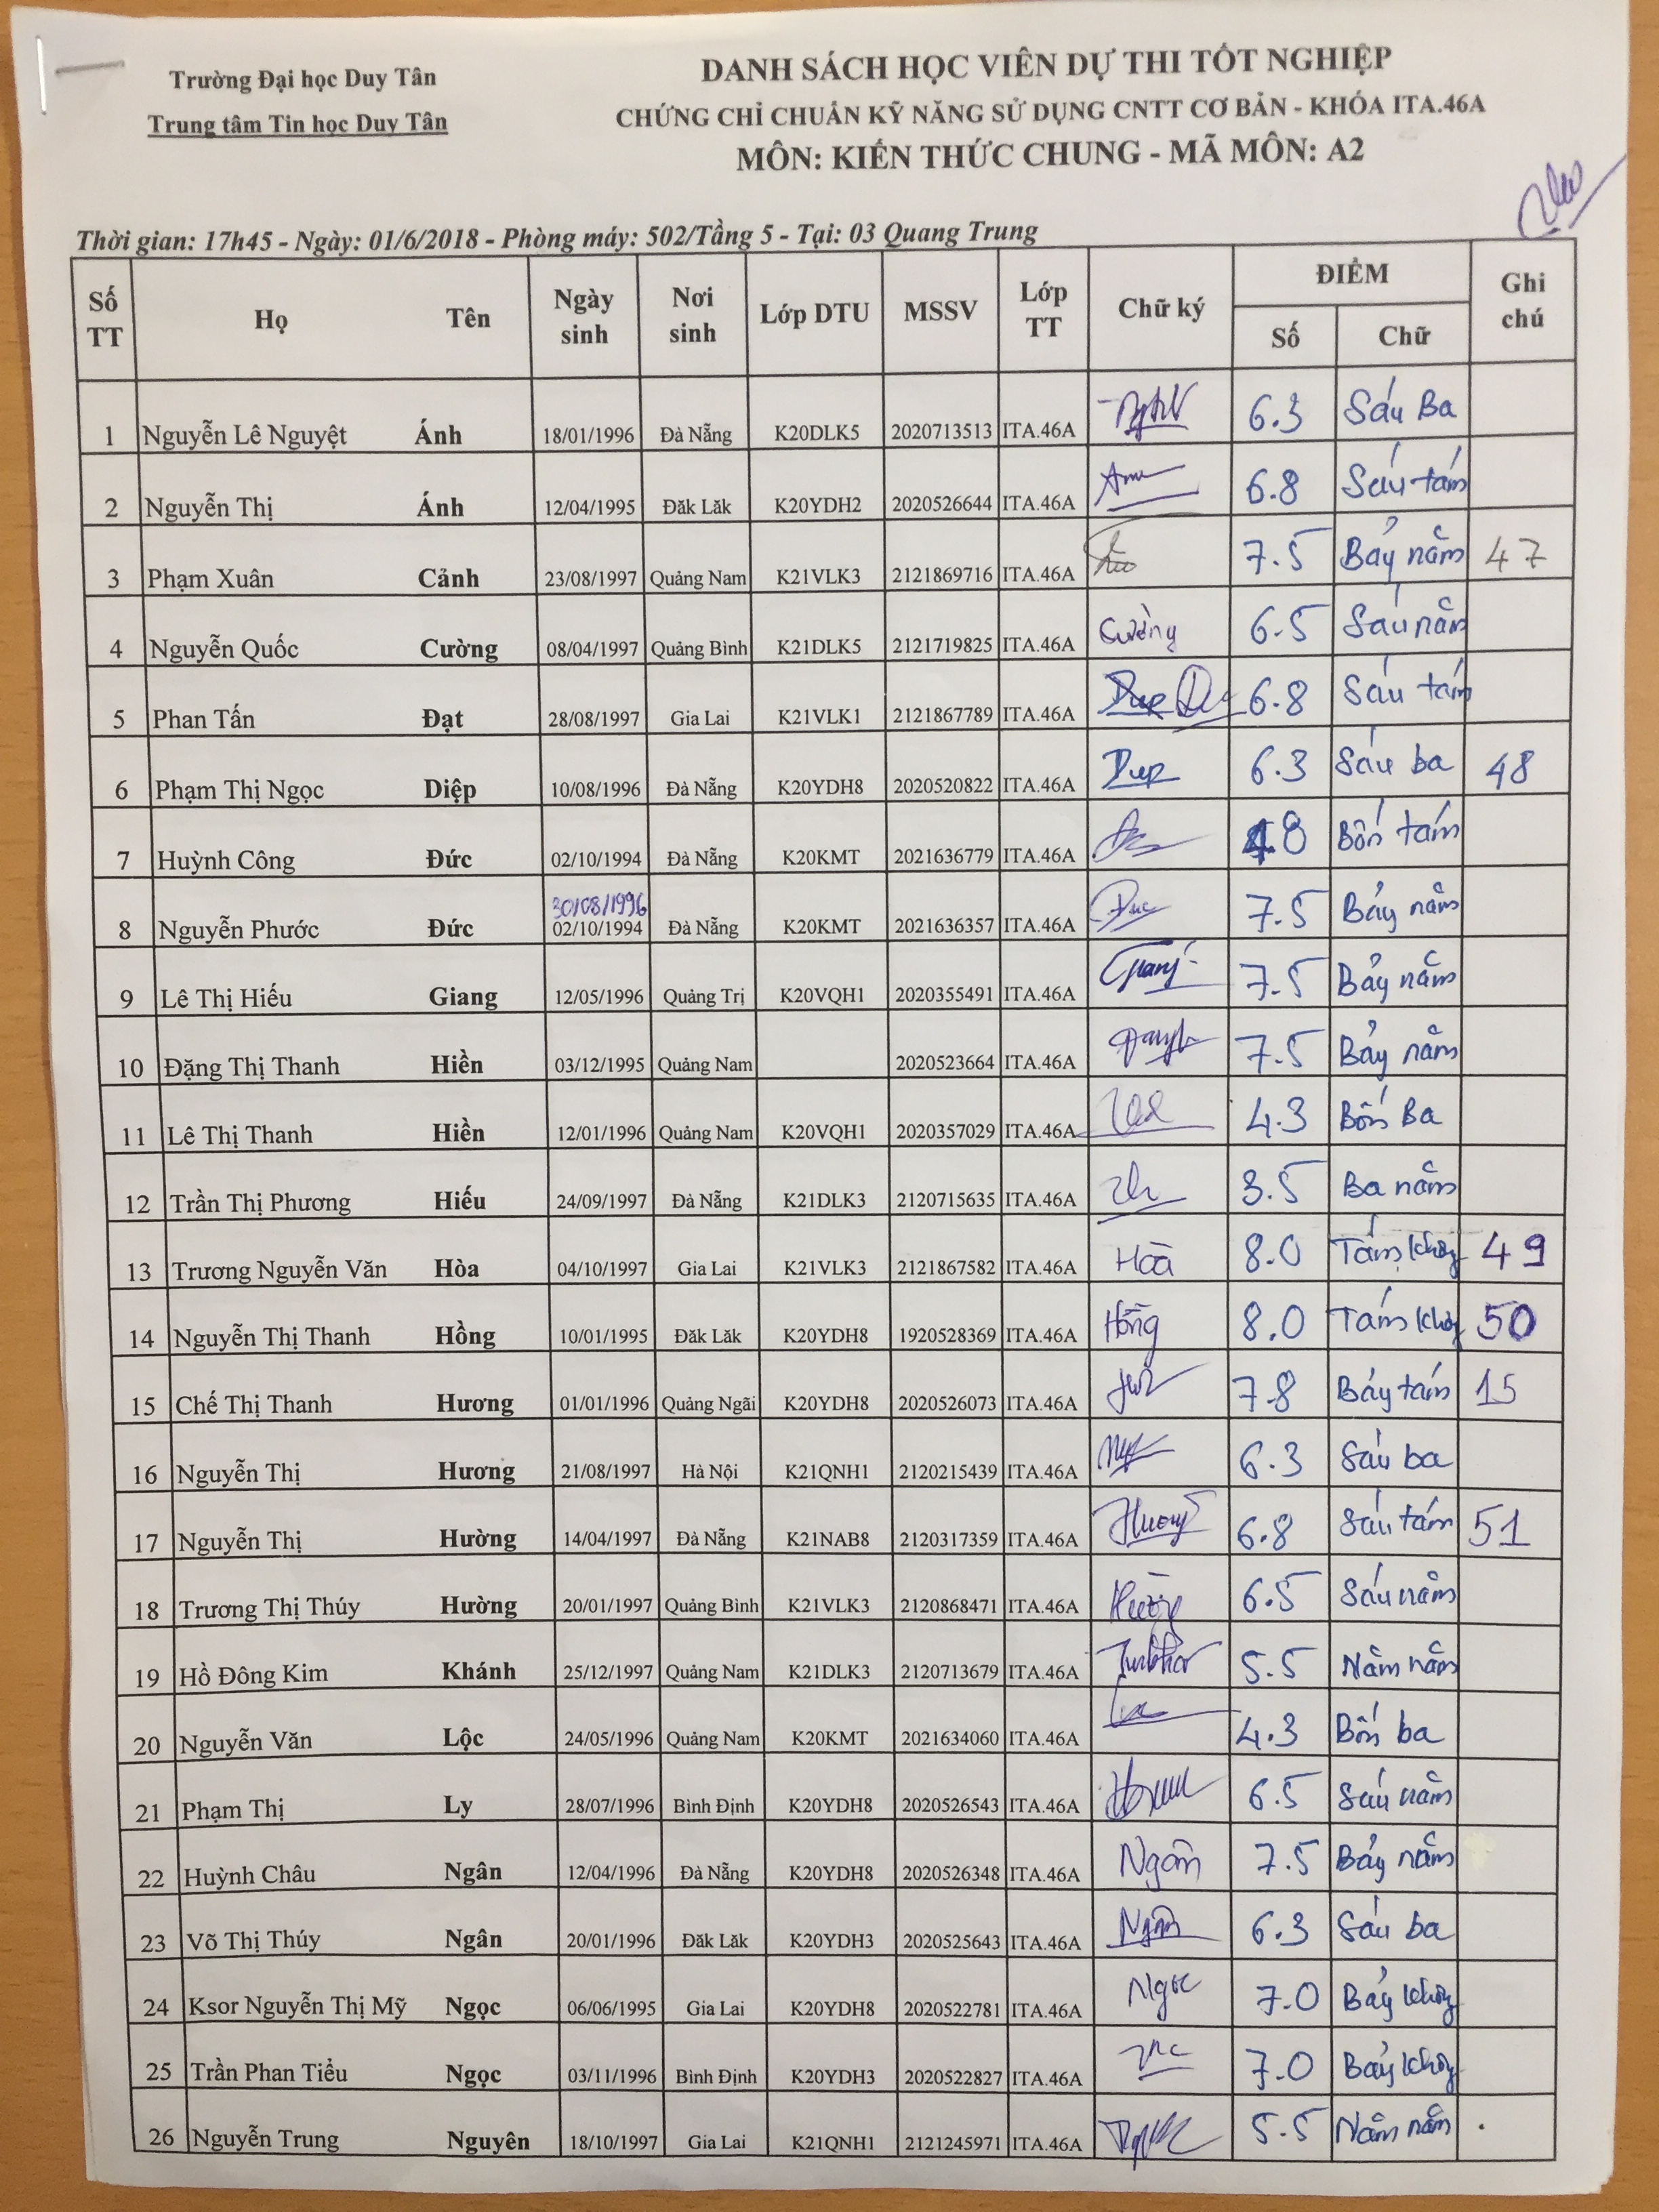 Trường Đại học Duy Tân
Trung tâm Tin học Duy Tân
DANH SÁCH HỌC VIÊN DỰ THI TỐT NGHIỆP
CHỨNG CHỈ CHUẨN KỸ NĂNG SỬ DỤNG CNTT CƠ BẢN - KHÓA ITA.46A
MÔN: KIẾN THỨC CHUNG - MÃ MÔN: A2
Thời gian: 17h45 - Ngày: 01/6/2018 - Phòng máy: 502/Tầng 5 - Tại: 03 Quang Trung
Số TT Họ Tên Ngày sinh Nơi sinh Lớp DTU MSSV Lớp TT Chữ ký ĐIỂM Số Chữ Ghi chú
1 Nguyễn Lê Nguyệt Ánh 18/01/1996 Đà Nẵng K20DLK5 2020713513 ITA.46A 6.3 Sáu Ba
2 Nguyễn Thị Ánh 12/04/1995 Đăk Lăk K20YDH2 2020526644 ITA.46A 6.8 Sáu tám
3 Phạm Xuân Cảnh 23/08/1997 Quảng Nam K21VLK3 2121869716 ITA.46A 7.5 Bảy năm 47
4 Nguyễn Quốc Cường 08/04/1997 Quảng Bình K21DLK5 2121719825 ITA.46A Cường 6.5 Sáu năm
5 Phan Tấn Đạt 28/08/1997 Gia Lai K21VLK1 2121867789 ITA.46A 6.8 Sáu tám
6 Phạm Thị Ngọc Diệp 10/08/1996 Đà Nẵng K20YDH8 2020520822 ITA.46A 6.3 Sáu ba 48
7 Huỳnh Công Đức 02/10/1994 Đà Nẵng K20KMT 2021636779 ITA.46A 4.8 Bốn tám
8 Nguyễn Phước Đức 30/08/1996 02/10/1994 Đà Nẵng K20KMT 2021636357 ITA.46A 7.5 Bảy năm
9 Lê Thị Hiếu Giang 12/05/1996 Quảng Trị K20VQH1 2020355491 ITA.46A Giang 7.5 Bảy năm
10 Đặng Thị Thanh Hiền 03/12/1995 Quảng Nam 2020523664 ITA.46A 7.5 Bảy năm
11 Lê Thị Thanh Hiền 12/01/1996 Quảng Nam K20VQH1 2020357029 ITA.46A 4.3 Bốn Ba
12 Trần Thị Phương Hiếu 24/09/1997 Đà Nẵng K21DLK3 2120715635 ITA.46A 3.5 Ba năm
13 Trương Nguyễn Văn Hòa 04/10/1997 Gia Lai K21VLK3 2121867582 ITA.46A Hoà 8.0 Tám không 49
14 Nguyễn Thị Thanh Hồng 10/01/1995 Đăk Lăk K20YDH8 1920528369 ITA.46A Hồng 8.0 Tám không 50
15 Chế Thị Thanh Hương 01/01/1996 Quảng Ngãi K20YDH8 2020526073 ITA.46A 7.8 Bảy tám 15
16 Nguyễn Thị Hương 21/08/1997 Hà Nội K21QNH1 2120215439 ITA.46A 6.3 Sáu ba
17 Nguyễn Thị Hường 14/04/1997 Đà Nẵng K21NAB8 2120317359 ITA.46A 6.8 Sáu tám 51
18 Trương Thị Thúy Hường 20/01/1997 Quảng Bình K21VLK3 2120868471 ITA.46A 6.5 Sáu năm
19 Hồ Đông Kim Khánh 25/12/1997 Quảng Nam K21DLK3 2120713679 ITA.46A 5.5 Năm năm
20 Nguyễn Văn Lộc 24/05/1996 Quảng Nam K20KMT 2021634060 ITA.46A 4.3 Bốn ba
21 Phạm Thị Ly 28/07/1996 Bình Định K20YDH8 2020526543 ITA.46A 6.5 Sáu năm
22 Huỳnh Châu Ngân 12/04/1996 Đà Nẵng K20YDH8 2020526348 ITA.46A Ngân 7.5 Bảy năm
23 Võ Thị Thúy Ngân 20/01/1996 Đăk Lăk K20YDH3 2020525643 ITA.46A Ngân 6.3 Sáu ba
24 Ksor Nguyễn Thị Mỹ Ngọc 06/06/1995 Gia Lai K20YDH8 2020522781 ITA.46A Ngọc 7.0 Bảy không
25 Trần Phan Tiểu Ngọc 03/11/1996 Bình Định K20YDH3 2020522827 ITA.46A 7.0 Bảy không
26 Nguyễn Trung Nguyên 18/10/1997 Gia Lai K21QNH1 2121245971 ITA.46A 5.5 Năm năm